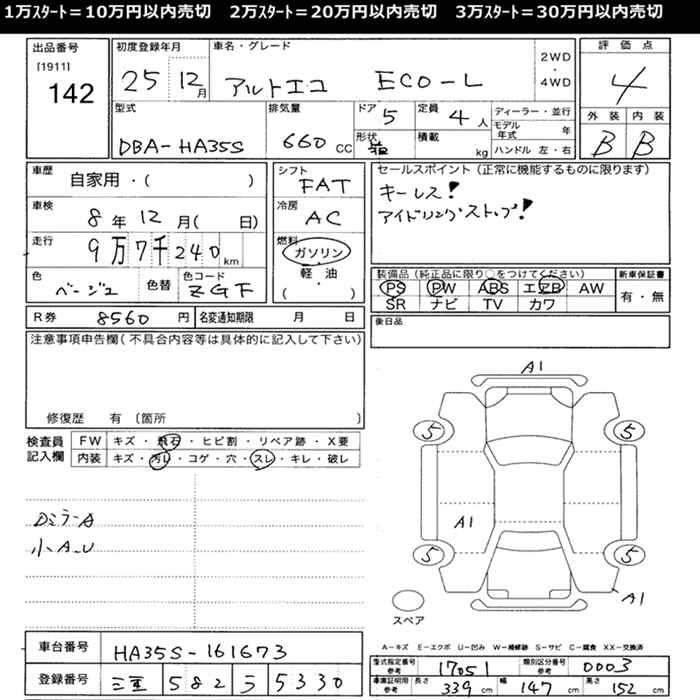 1万ｽﾀｰﾄ＝10万円以内売切　2万ｽﾀｰﾄ＝20万円以内売切　3万ｽﾀｰﾄ＝30万円以内売切
出品番号 初度登録年月 車名・グレード 評価点
[1911] 142 25 12月 アルトエコ ECO-L 2WD・4WD 4
型式 排気量 ドア 5 定員 4人 ディーラー・並行 外装 内装
DBA-HA35S 660 CC 形状 積載 kg モデル年式 年 ハンドル 左・右 B B
車歴 自家用・( ) シフト FAT セールスポイント (正常に機能するものに限ります)
車検 8年12月( 日) 冷房 AC キーレス!
走行 9万7千240km 燃料 ガソリン アイドリングストップ!
軽油 ( )
色 ベージュ 色替 色コード ZGF
装備品 (純正品に限り○をつけてください) 新車保証書
PS PW ABS エアB AW 有・無
SR ナビ TV カワ
R券 8560円 名変通知期限 月 日 後日品
注意事項申告欄(不具合内容等は具体的に記入して下さい)
修復歴 有 (箇所 )
検査員記入欄 FW キズ・飛石・ヒビ割・リペア跡・X要
内装 キズ・汚レ・コゲ・穴・スレ・キレ・破レ
DミラーA
小A.U
A1
5 5
A1
5 5
A1
スペア
A－キズ E－エクボ U－凹み W－補修跡 S－サビ C－腐食 XX－交換済
車台番号 HA35S-161673
登録番号 三重 582 う 5330
型式指定番号 参考 17051 類別区分番号 参考 0003
車庫証明用 参考 長さ 339cm 幅 147cm 高さ 152cm